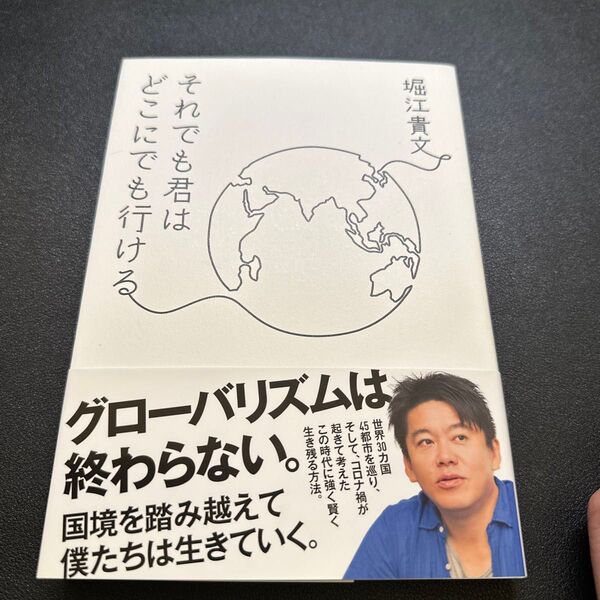 それでも君は
どこにでも行ける
堀江貴文
グローバリズムは
終わらない。
国境を踏み越えて
僕たちは生きていく。
世界30カ国
45都市を巡り、
そして、コロナ禍が
起きて考えた
この時代に強く賢く
生き残る方法。